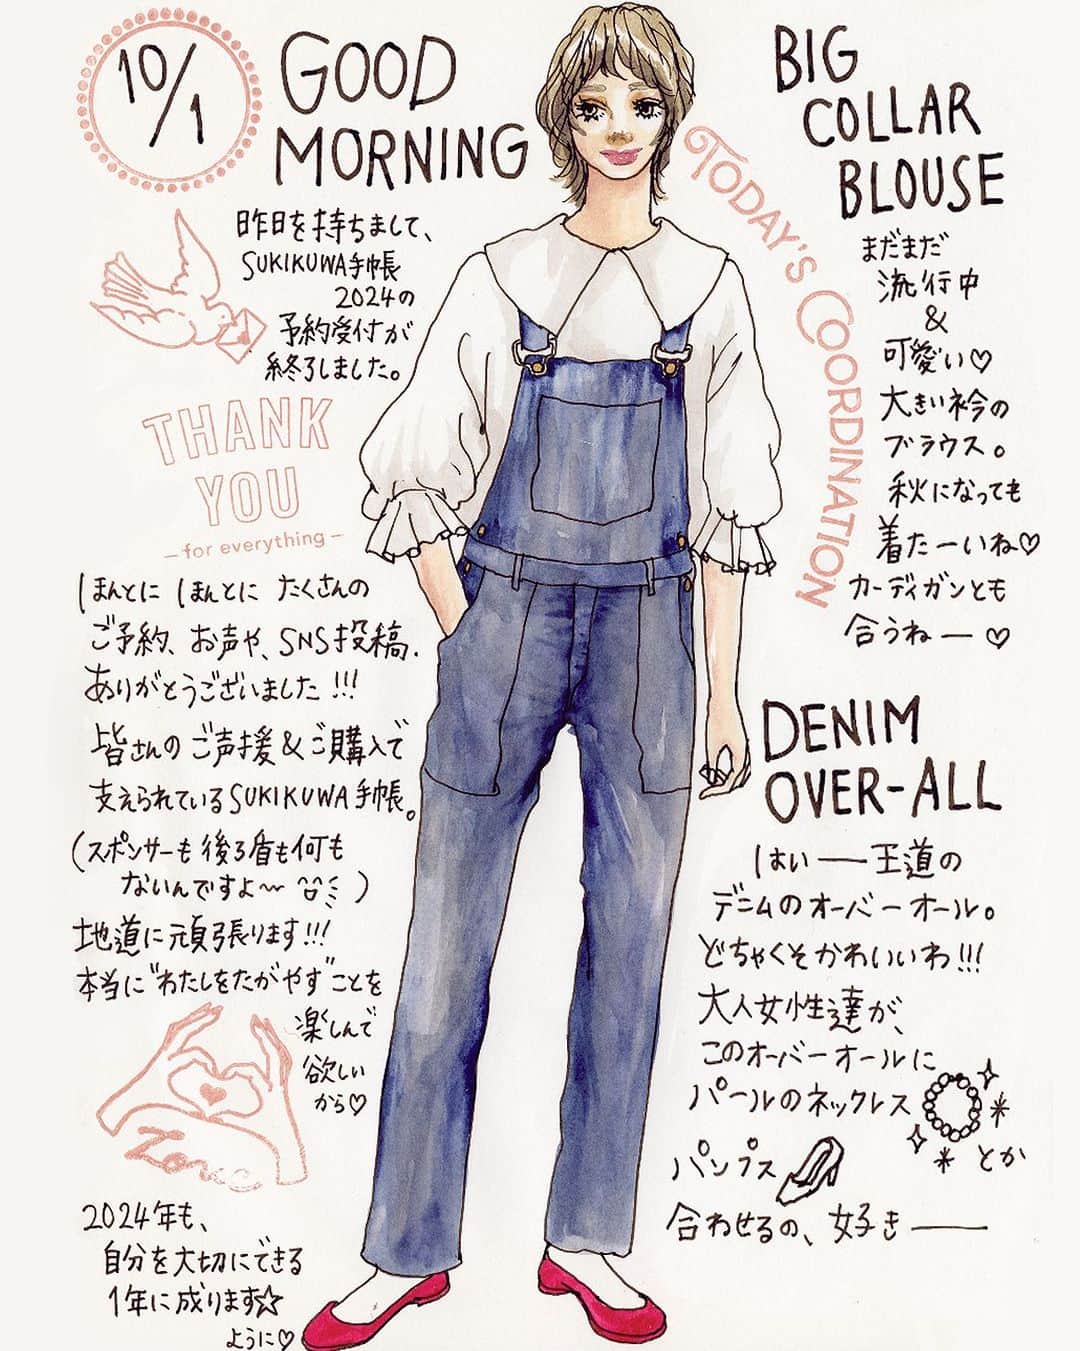 10/1
GOOD
MORNING
昨日を持ちまして、
SUKIKUWA手帳
2024の
予約受付が
終了しました。
THANK
YOU
–for everything–
ほんとに ほんとに たくさんの
ご予約、お声や、SNS投稿.
ありがとうございました!!!
皆さんの ご声援&ご購入で
支えられているSUKIKUWA手帳。
(スポンサーも後ろ盾も何も
ないんですよ〜)
地道に頑張ります!!!
本当に"わたしをたがやす"ことを
楽しんで
欲しい
から♡
Love
2024年も、
自分を大切にできる
1年に成ります☆
ように♡
TODAY'S COORDINATION
BIG
COLLAR
BLOUSE
まだまだ
流行中
&
可愛い♡
大きい衿の
ブラウス。
秋になっても
着たーいね♡
カーディガンとも
合うねー♡
DENIM
OVER-ALL
はい——王道の
デニムのオーバーオール。
どちゃくそかわいいわ!!!
大人女性達が、
このオーバーオールに
パールのネックレス
とか
パンプス
合わせるの、好き——